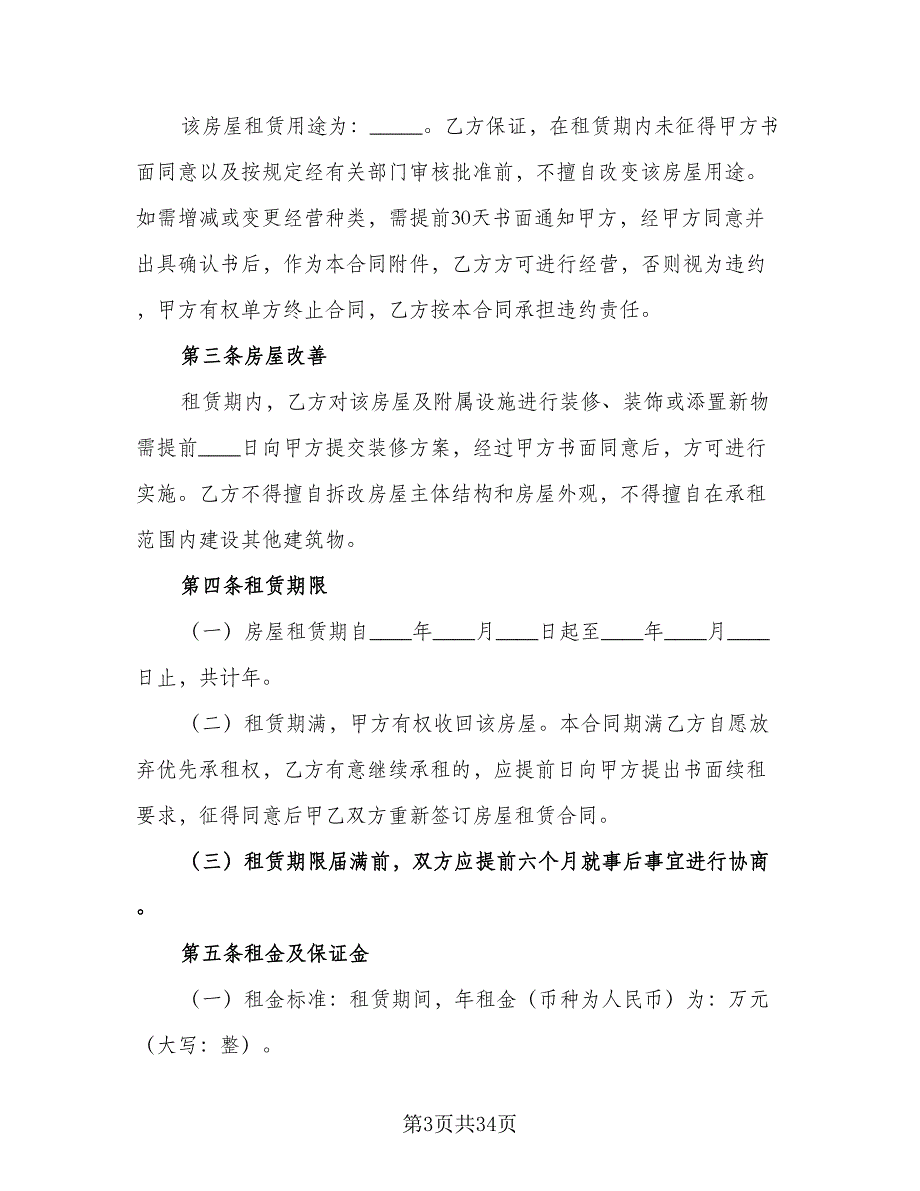 该房屋租赁用途为：_____。乙方保证，在租赁期内未征得甲方书
面同意以及按规定经有关部门审核批准前，不擅自改变该房屋用途。
如需增减或变更经营种类，需提前30天书面通知甲方，经甲方同意并
出具确认书后，作为本合同附件，乙方方可进行经营，否则视为违约
，甲方有权单方终止合同，乙方按本合同承担违约责任。
第三条房屋改善
租赁期内，乙方对该房屋及附属设施进行装修、装饰或添置新物
需提前____日向甲方提交装修方案，经过甲方书面同意后，方可进行
实施。乙方不得擅自拆改房屋主体结构和房屋外观，不得擅自在承租
范围内建设其他建筑物。
第四条租赁期限
（一）房屋租赁期自____年____月____日起至____年____月____
日止，共计年。
（二）租赁期满，甲方有权收回该房屋。本合同期满乙方自愿放
弃优先承租权，乙方有意继续承租的，应提前日向甲方提出书面续租
要求，征得同意后甲乙双方重新签订房屋租赁合同。
（三）租赁期限届满前，双方应提前六个月就事后事宜进行协商
。
第五条租金及保证金
（一）租金标准：租赁期间，年租金（币种为人民币）为：万元
（大写：整）。
第3页共34页